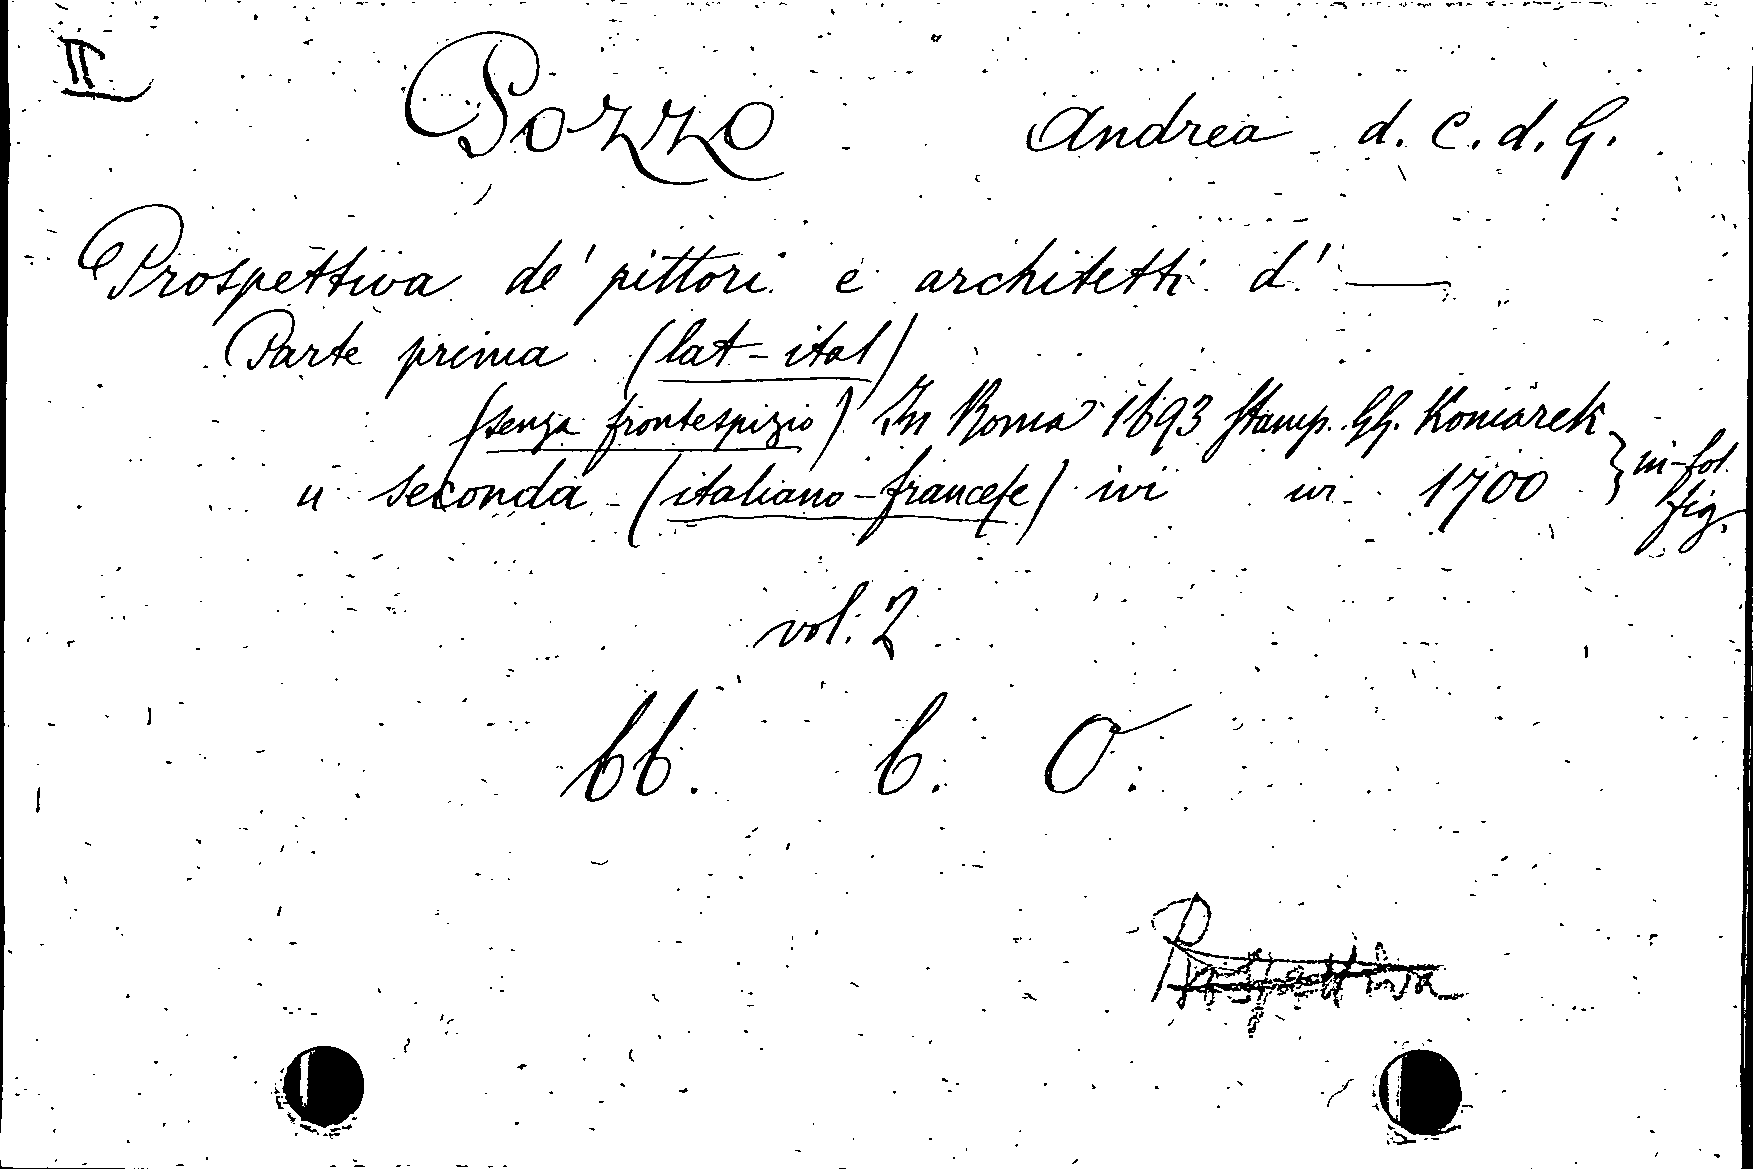 II
Pozzo Andrea d. C. d. G.
Prospettiva de' pittori e architetti d' —
Parte prima (lat-ital)
(senza frontespizio) In Roma 1693 Stamp. GG. Komarek
" seconda (italiano-francese) ivi ivi 1700 } in-fol. fig.
vol. 2
bb. b. O.
Prospettiva